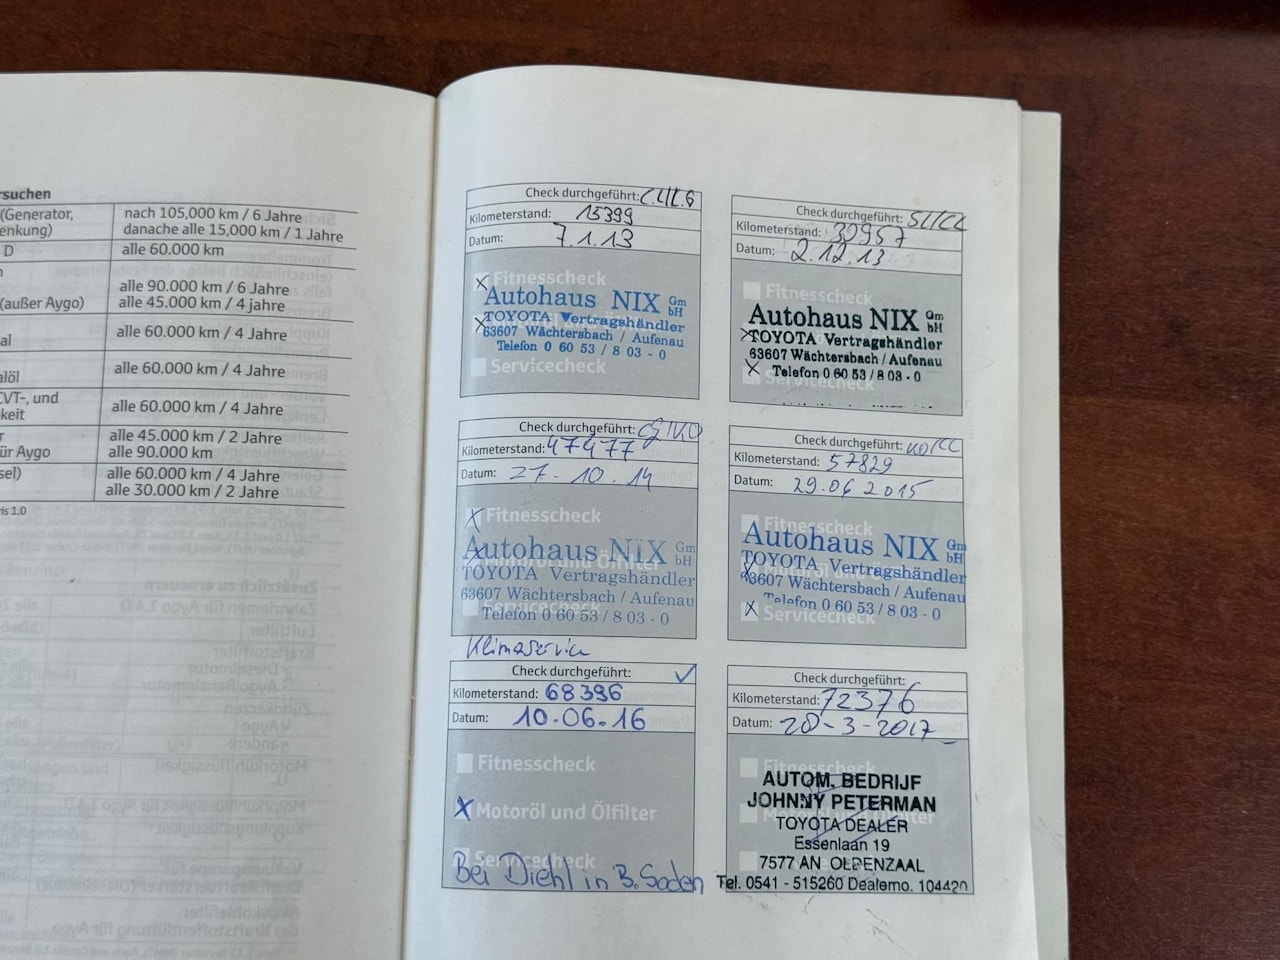 rsuchen
(Generator,
nach 105,000 km / 6 Jahre
enkung)
danache alle 15,000 km / 1 Jahre
D
alle 60.000 km
alle 90.000 km / 6 Jahre
(außer Aygo)
alle 45.000 km / 4 jahre
al
alle 60.000 km / 4 Jahre
alöl
alle 60.000 km / 4 Jahre
CVT-, und
keit
alle 60.000 km / 4 Jahre
r
alle 45.000 km / 2 Jahre
ür Aygo
alle 90.000 km
sel)
alle 60.000 km / 4 Jahre
alle 30.000 km / 2 Jahre
ris 1.0
Check durchgeführt:
Kilometerstand: 15399
Datum: 7.1.13
Fitnesscheck
Autohaus NIX Gm bH
TOYOTA Vertragshändler
63607 Wächtersbach / Aufenau
Telefon 0 60 53 / 8 03 - 0
Servicecheck
Check durchgeführt:
Kilometerstand: 32957
Datum: 2.12.13
Fitnesscheck
Autohaus NIX Gm bH
TOYOTA Vertragshändler
63607 Wächtersbach / Aufenau
Telefon 0 60 53 / 8 03 - 0
Servicecheck
Check durchgeführt:
Kilometerstand: 47477
Datum: 27.10.14
Fitnesscheck
Motoröl und Ölfilter
Autohaus NIX Gm bH
TOYOTA Vertragshändler
63607 Wächtersbach / Aufenau
Telefon 0 60 53 / 8 03 - 0
Servicecheck
Klimaservice
Check durchgeführt:
Kilometerstand: 57829
Datum: 29.06.2015
Fitnesscheck
Autohaus NIX Gm bH
Motoröl und Ölfilter
TOYOTA Vertragshändler
63607 Wächtersbach / Aufenau
Telefon 0 60 53 / 8 03 - 0
Servicecheck
Check durchgeführt: ✓
Kilometerstand: 68396
Datum: 10.06.16
Fitnesscheck
X Motoröl und Ölfilter
Servicecheck
Bei Diehl in B. Soden
Check durchgeführt:
Kilometerstand: 72376
Datum: 20-3-2017
Fitnesscheck
AUTOM. BEDRIJF
JOHNNY PETERMAN
Motoröl und Ölfilter
TOYOTA DEALER
Essenlaan 19
7577 AN OLDENZAAL
Tel. 0541 - 515260 Dealerno. 104420